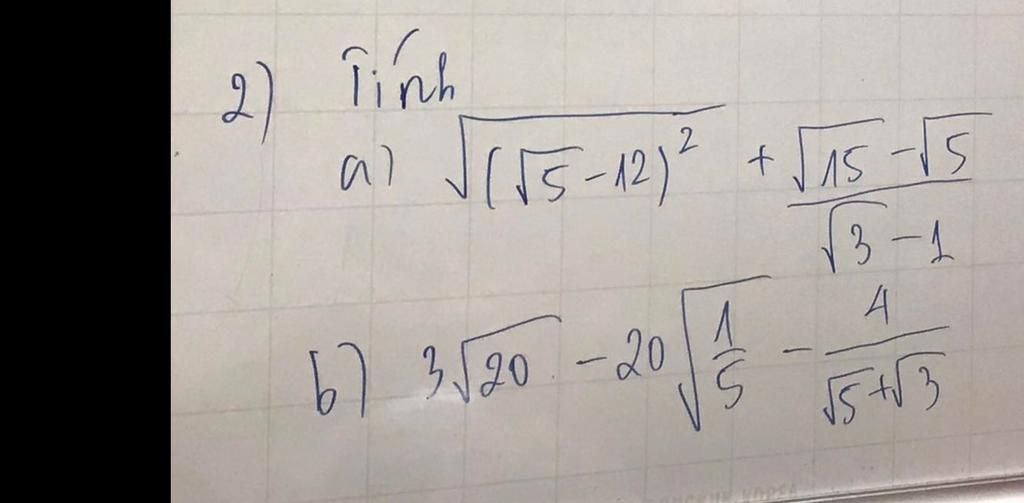 2) Tính
a) √(√5-12)² + (√15-√5)/(√3-1)
b) 3√20 - 20√(1/5) - 4/(√5+√3)